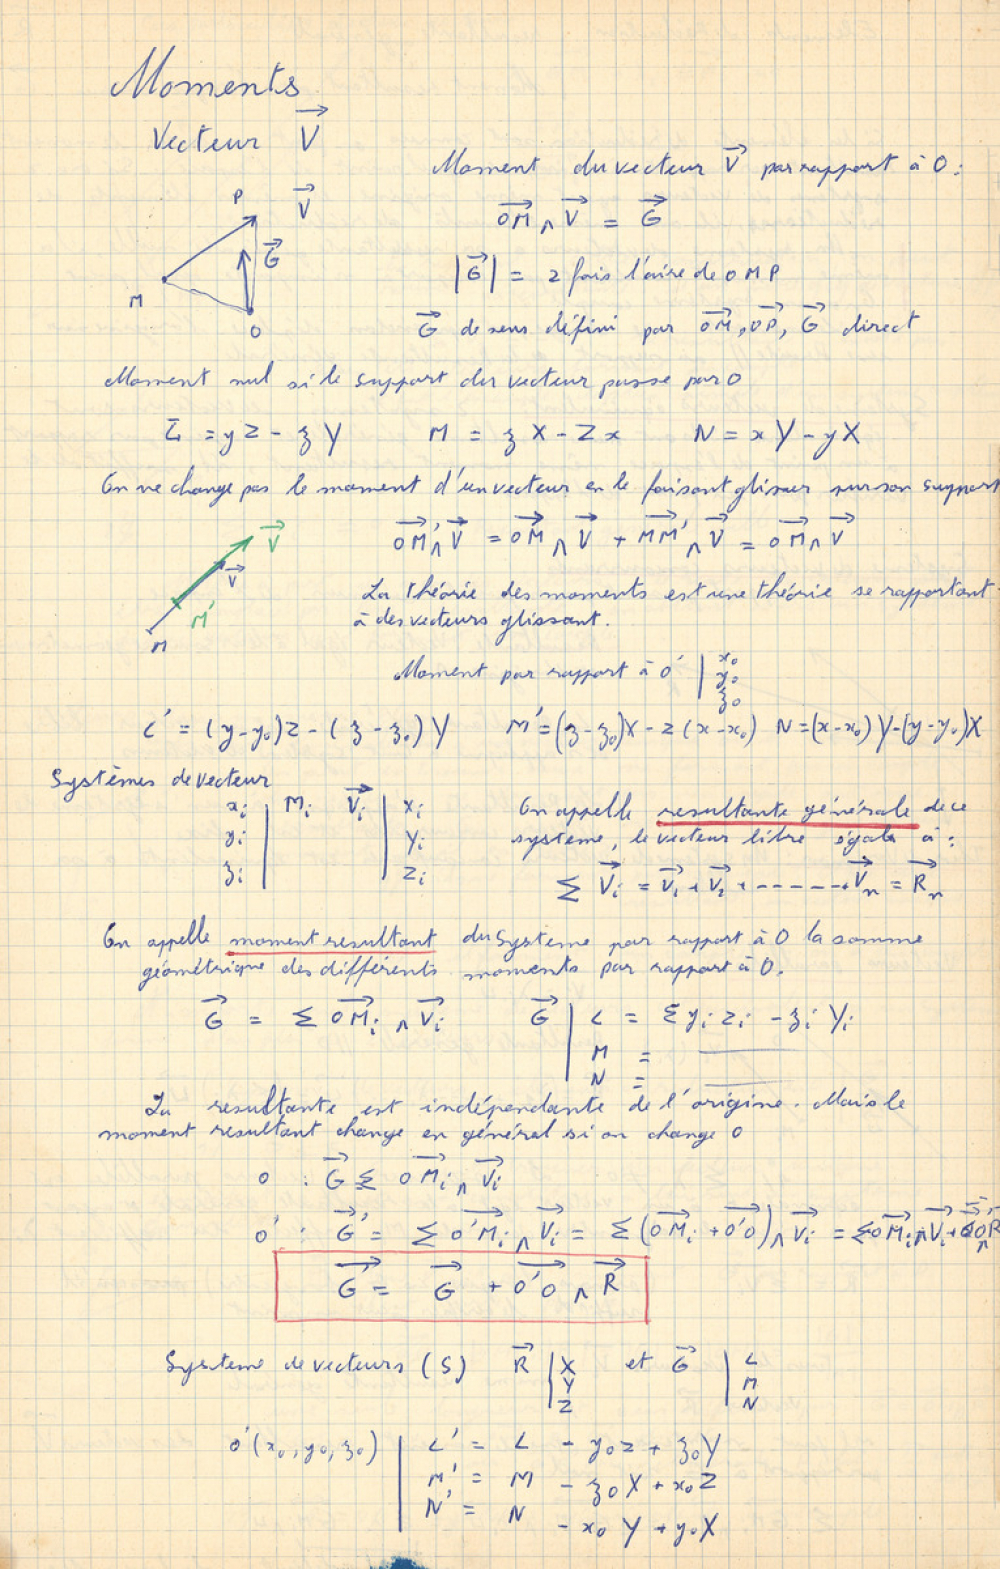 Moments
Vecteur V⃗
Moment du vecteur V⃗ par rapport à O :
OM⃗ ∧ V⃗ = G⃗
P V⃗
G⃗
M
O
|G⃗| = 2 fois l'aire de OMP
G⃗ de sens défini par OM⃗, OP⃗, G⃗ direct
Moment nul si le support du vecteur passe par O
L = yZ - zY M = zX - Zx N = xY - yX
On ne change pas le moment d'un vecteur en le faisant glisser sur son support
OM'⃗ ∧ V⃗ = OM⃗ ∧ V⃗ + MM'⃗ ∧ V⃗ = OM⃗ ∧ V⃗
V⃗
V⃗
M'
M
La théorie des moments est une théorie se rapportant
à des vecteurs glissant.
Moment par rapport à O' | x₀ y₀ z₀
L' = (y-y₀)Z - (z-z₀)Y M' = (z-z₀)X - Z(x-x₀) N = (x-x₀)Y - (y-y₀)X
Systèmes de vecteur
xᵢ | Mᵢ V⃗ᵢ | Xᵢ
yᵢ | | Yᵢ
zᵢ | | Zᵢ
On appelle resultante générale de ce
systeme, le vecteur libre égale à :
Σ V⃗ᵢ = V⃗₁ + V⃗₂ + ------ + V⃗ₙ = R⃗ₙ
On appelle moment resultant du Systeme par rapport à O la somme
géométrique des différents moments par rapport à O.
G⃗ = Σ OM⃗ᵢ ∧ V⃗ᵢ G⃗ | L = Σ yᵢ Zᵢ - zᵢ Yᵢ
M = ———
N = ———
La resultante est indépendante de l'origine. Mais le
moment resultant change en général si on change O
O : G⃗ Σ OM⃗ᵢ ∧ V⃗ᵢ
O' : G⃗' = Σ O'M⃗ᵢ ∧ V⃗ᵢ = Σ (OM⃗ᵢ + O'O⃗) ∧ V⃗ᵢ = Σ OM⃗ᵢ ∧ V⃗ᵢ +
G⃗ = G⃗ + O'O⃗ ∧ R⃗
Systeme de vecteurs (S) R⃗ | X Y Z et G⃗ | L M N
O'(x₀, y₀, z₀) | L' = L - y₀Z + z₀Y
M' = M - z₀X + x₀Z
N' = N - x₀Y + y₀X